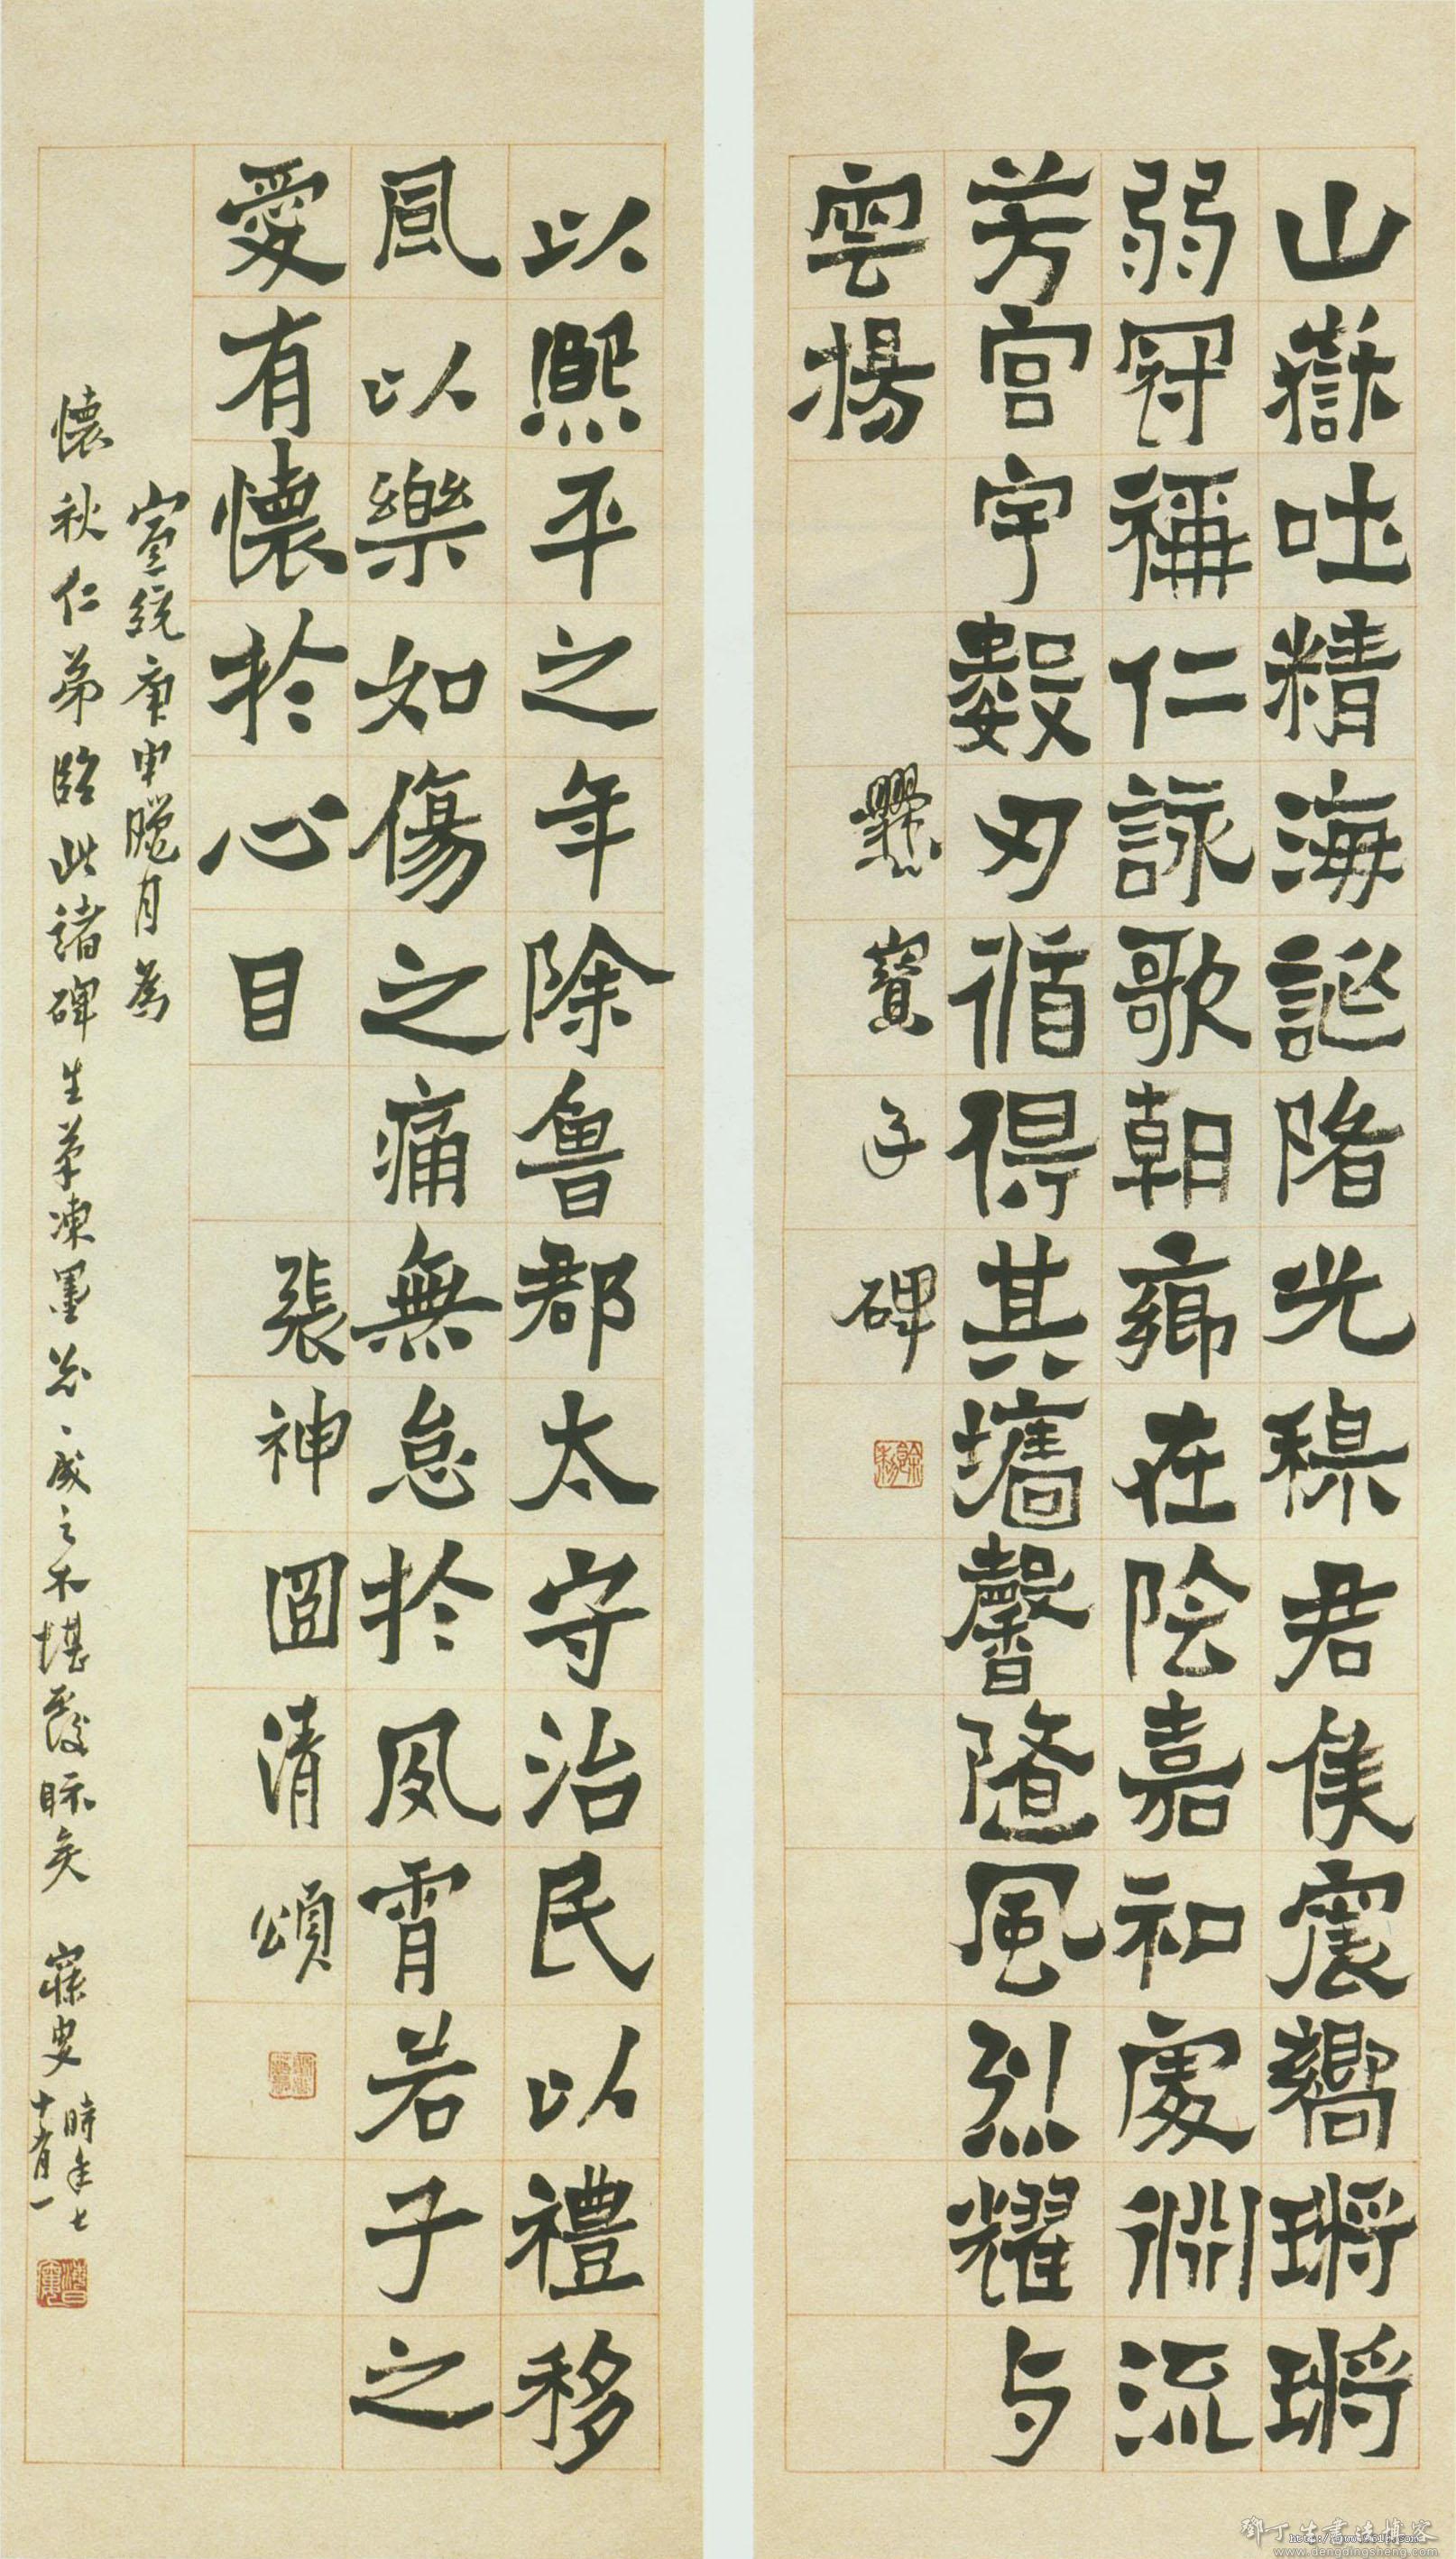 山嶽吐精海誕陼光穆君侯震響鏘鏘
弱冠稱仁詠歌朝鄉在陰嘉和處淵流
芳宮宇數刃循得其墻馨隨風烈耀与
雲揚
爨寶子碑
以熙平之年除魯郡太守治民以禮移
風以樂如傷之痛無怠於夙宵若子之
愛有懷於心目
張神囧清頌
宣統庚申臘月為
懷秋仁弟臨此諸碑生筆凍墨匆、成之不堪覆眎矣 寐叟 時年七十有一
鄧丁生書法博客
www.dengdingsheng.com